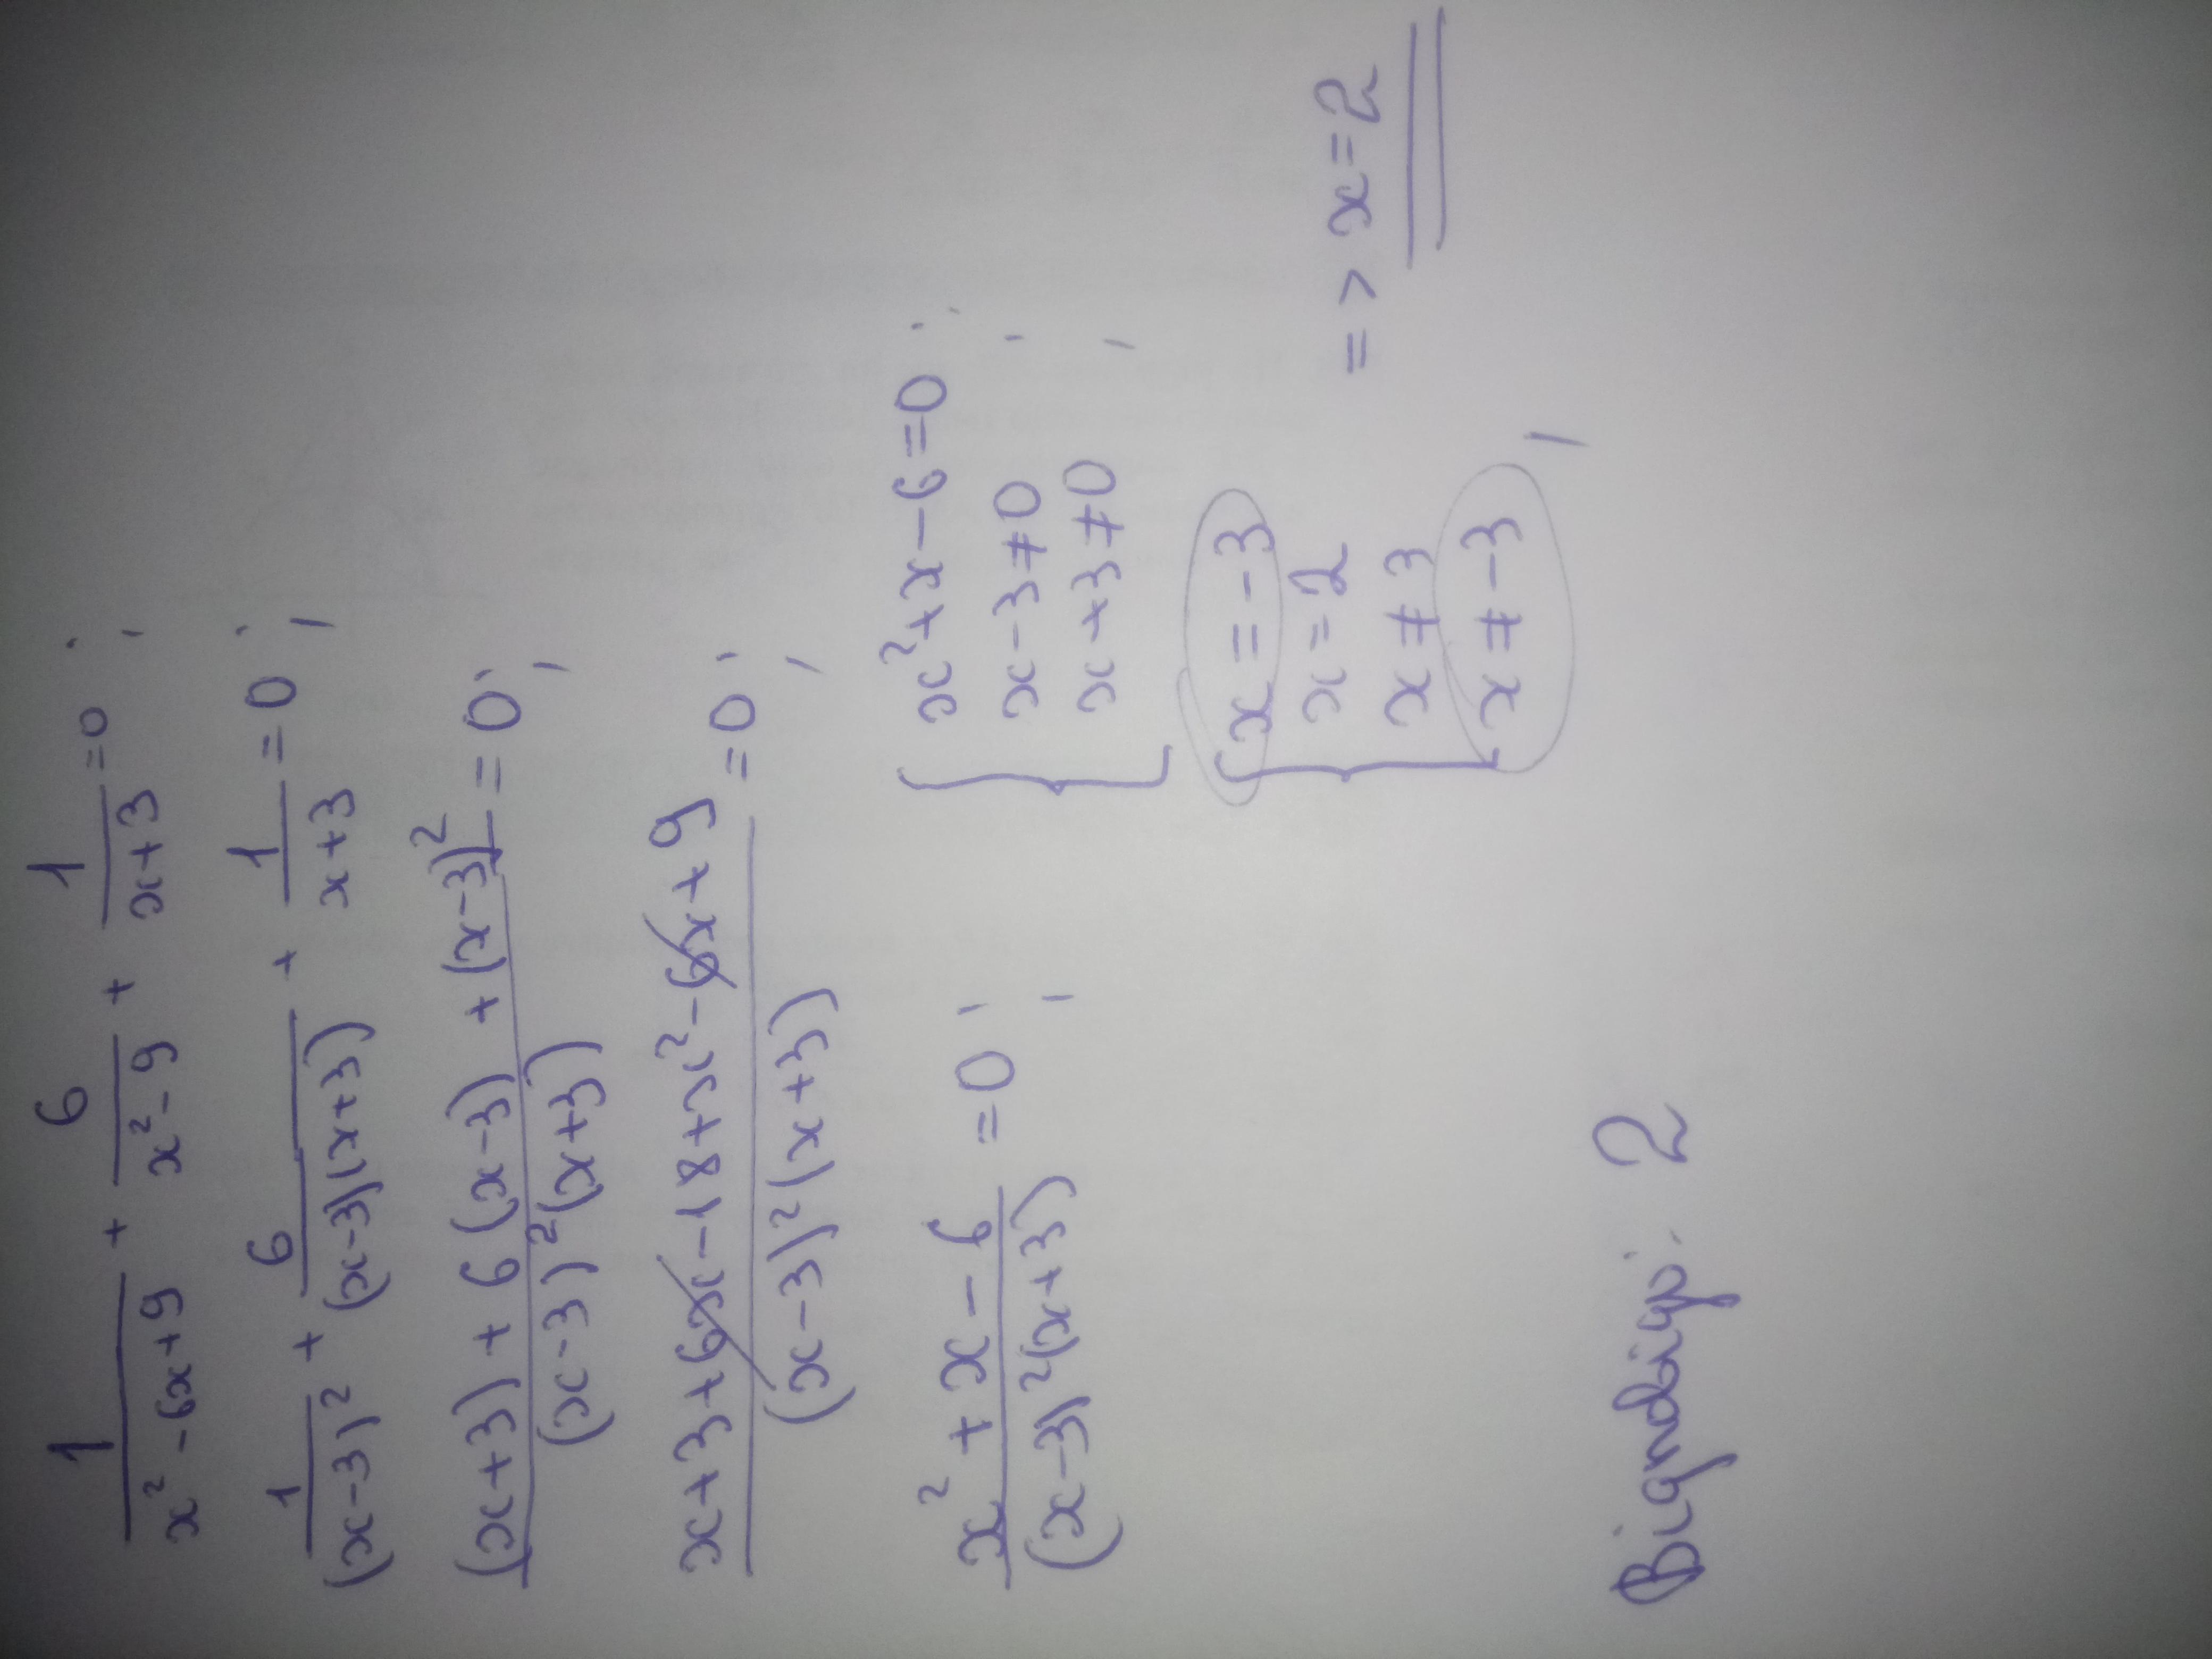 1/(x²-6x+9) + 6/(x²-9) + 1/(x+3) =0;
1/(x-3)² + 6/((x-3)(x+3)) + 1/(x+3) =0;
((x+3)+6(x-3)+(x-3)²)/((x-3)²(x+3)) =0;
(x+3+6x-18+x²-6x+9)/((x-3)²(x+3)) =0;
(x²+x-6)/((x-3)²(x+3)) =0;
{ x²+x-6=0;
x-3≠0;
x+3≠0;
{ x=-3
x=2
x≠3
x≠-3;
=> x=2
Відповідь: 2